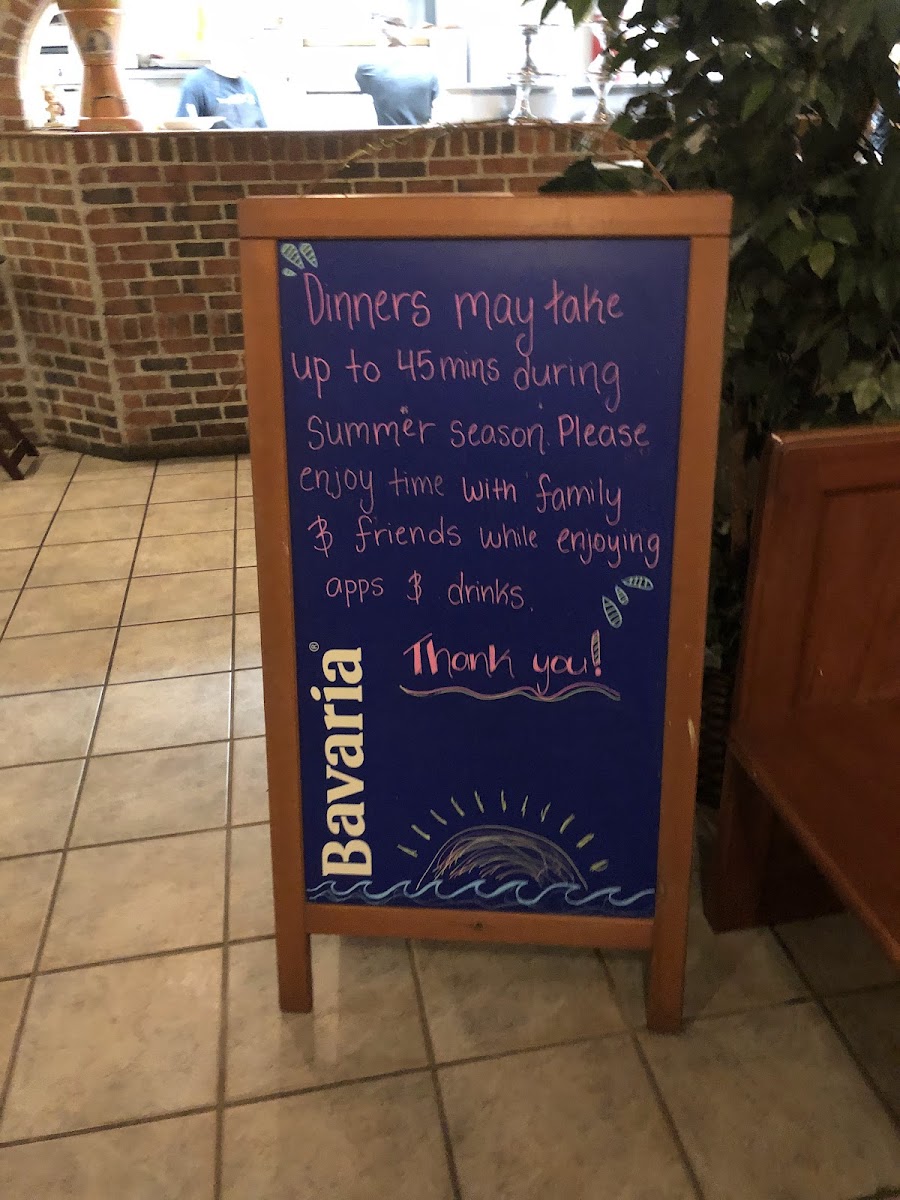 Dinners may take
up to 45 mins during
summer season. Please
enjoy time with family
& friends while enjoying
apps & drinks.
Thank you!
Bavaria®